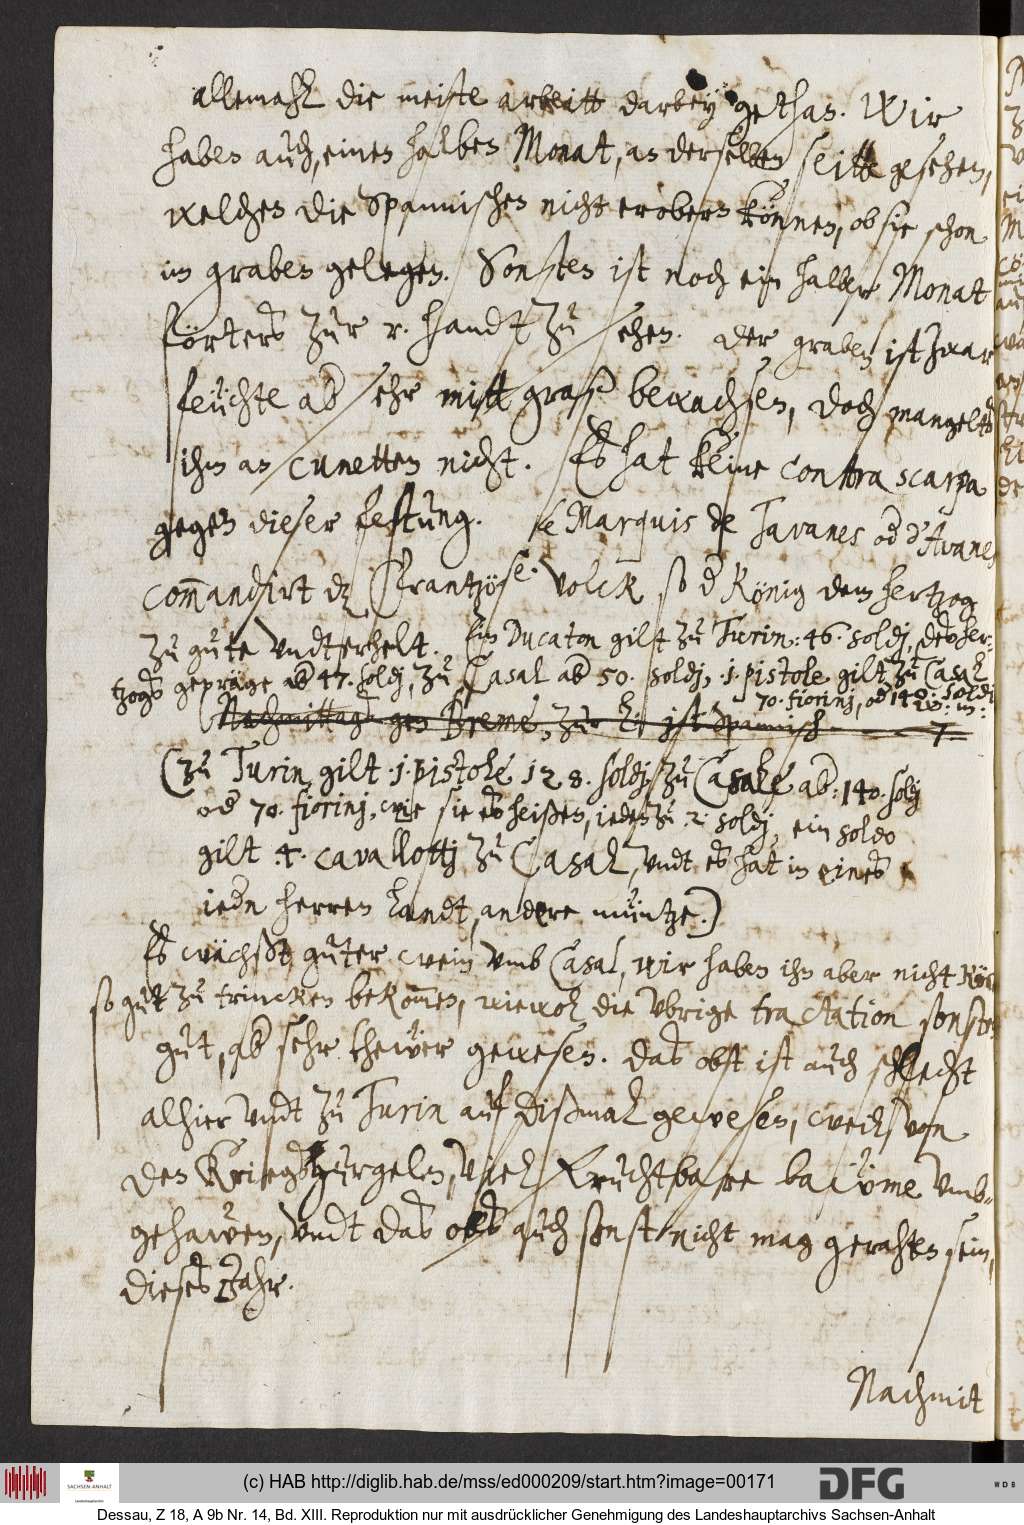 allemahl die meiste arbeitt darbey gethan. Wir
haben auch, einen halben Monat, an derselben seitte gesehen,
welchen die Spannischen nicht erobern können, ob sie schon
im graben gelegen. Sonsten ist noch ein halber Monat
förters zur r. handt zu sehen. der graben ist zwar
feüchte ab sehr mitt graß bewachsen, doch mangelts
ihm an cunetten nicht. Es hat keine contra scarpa
gegen dieser festung. Le Marquis de Tavanes od d'Avanes
com̄andirt dz Frantzöse. volck so d König dem hertzog
zu gute undterhelt. Ein Ducaton gilt zu Turin: 46. soldj, des her-
tzogs gepräge ab 47. soldj, zu Casal ab 50. soldj, .1. pistole gilt zu Casal
70. fiorinj, od 140. soldj
Nachmittags gen Breme, zur ist Spannisch 7
(zu Turin gilt .1. pistole 128. soldj zu Casale ab: 140. soldj
od 70. fiorinj, wie sie es heißen, ieden zu .2. soldj, ein soldo
gilt .4. cavallottj zu Casal, undt es hat in eines
iedn herren landt, andere müntze.)
Es wächßt guter wein umb Casal, wir haben ihn aber nicht
so gut zu trincken bekom̄en, wiewol die ubrige tractation sonsten
gut, ab sehr theüer gewesen. das obst ist auch schlecht
alhier undt zu Turin auf dißmal gewesen, weil von
den Kriegsgurgeln, viel fruchtbare baüme umb-
gehawen, undt das obs auch sonst nicht mag gerahten sein,
dieses Jahr.
Nachmit
(c) HAB http://diglib.hab.de/mss/ed000209/start.htm?image=00171
SACHSEN-ANHALT
DFG
WDB
Dessau, Z 18, A 9b Nr. 14, Bd. XIII. Reproduktion nur mit ausdrücklicher Genehmigung des Landeshauptarchivs Sachsen-Anhalt